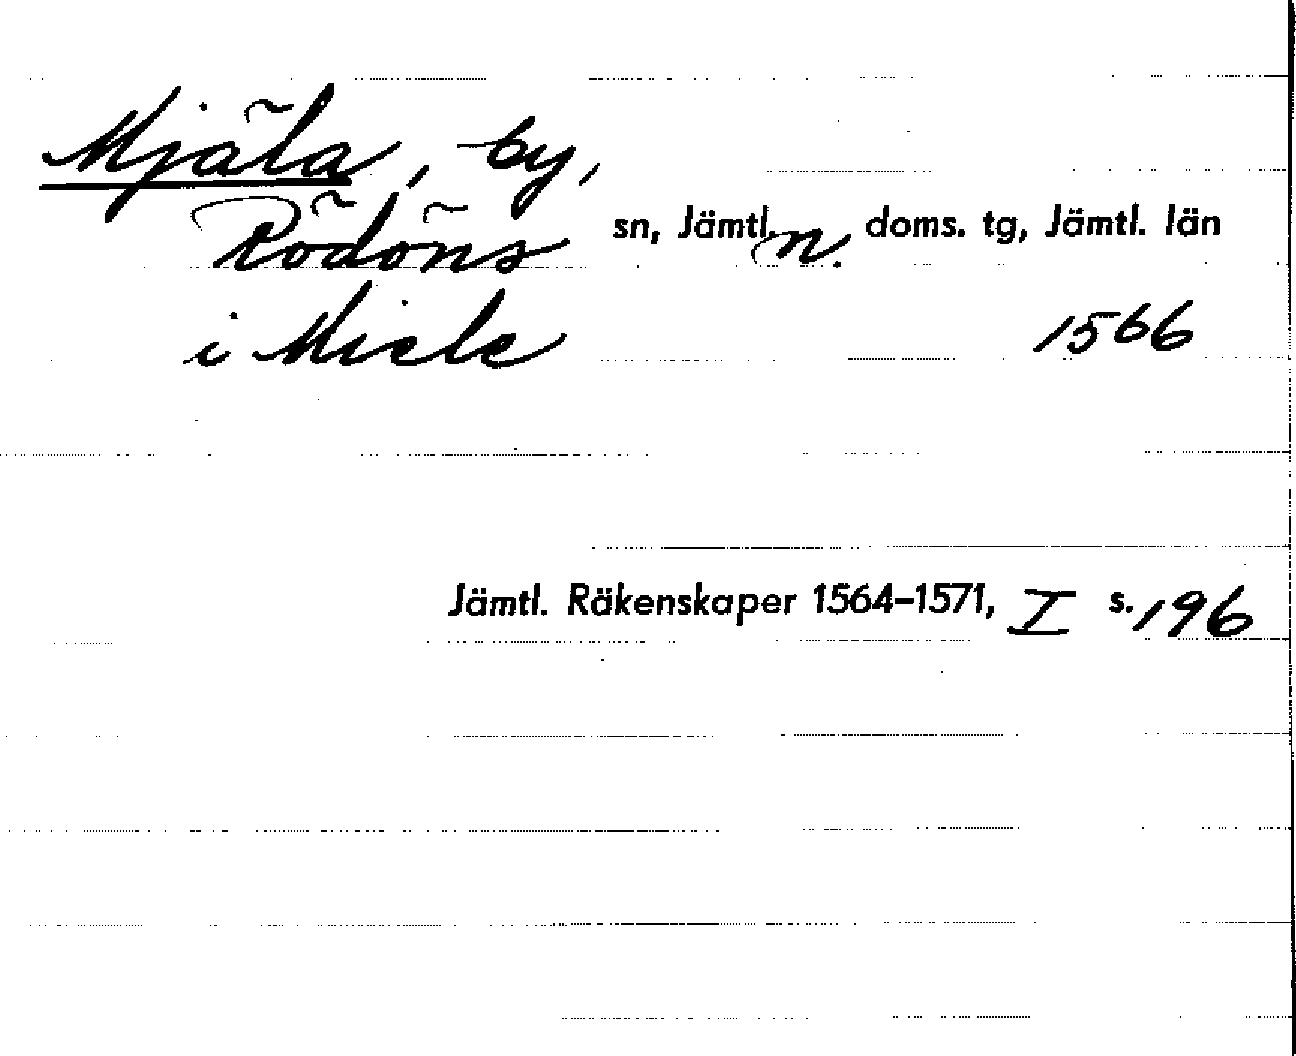 Mjäla, by,
Rödöns sn, Jämtl. n. doms. tg, Jämtl. län
i Miele 1566
Jämtl. Räkenskaper 1564-1571, I s. 196